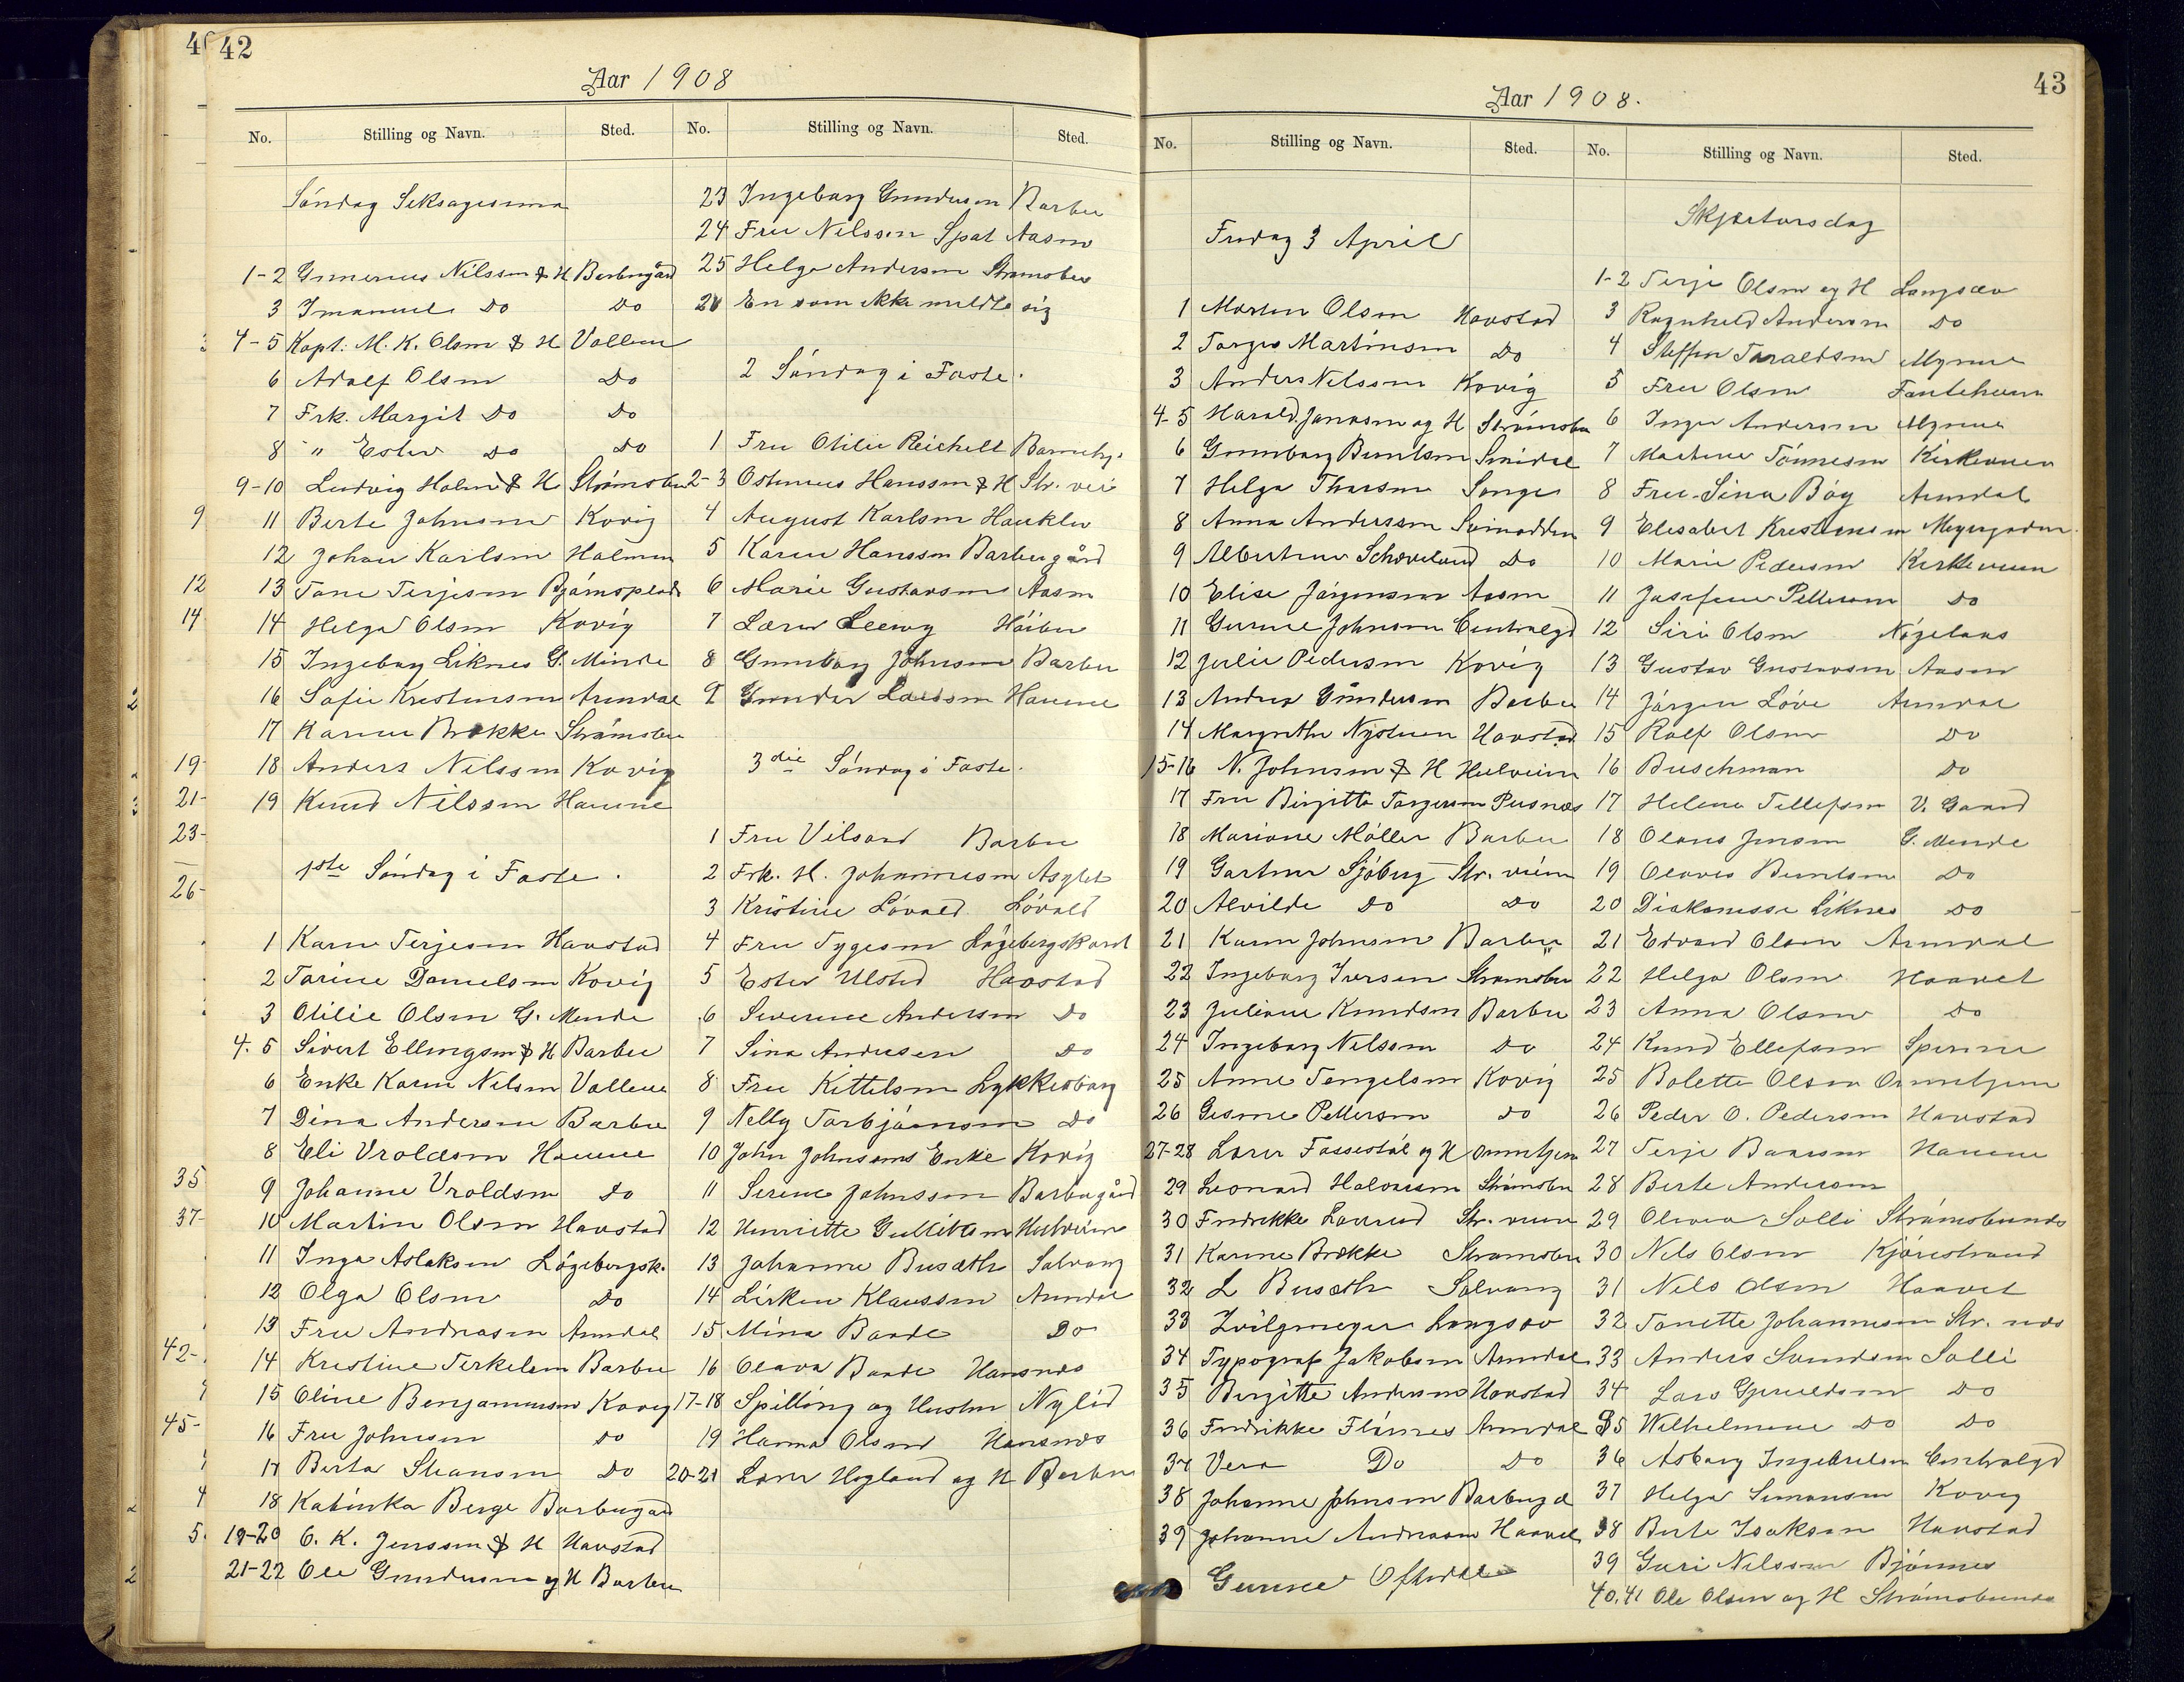 42
Aar 1908
No. Stilling og Navn. Sted.
Søndag Seksagesima
1-2 Gunerius Nilssen & H Barbugård
3 Imanuel Do Do
4-5 Kapt. M. K. Olsen & H Vollene
6 Adolf Olsen Do
7 Frk. Margit Do Do
8 " Ester Do Do
9-10 Ludvig Holm & H Strømsbu
11 Berte Johnsen Kovig
12 Johan Karlsen Holmen
13 Tone Terjesen Bjørnsplads
14 Helga Olsen Kovig
15 Ingeborg Liknes G. Minde
16 Sofie Kristensen Arendal
17 Karen Brække Strømsbu
18 Anders Nilssen Kovig
19 Knud Nilssen Havene
1ste Søndag i Faste.
1 Karen Terjesen Havstad
2 Tarine Danielsen Kovig
3 Otilie Olsen G. Minde
4. 5 Sivert Ellingsen & H Barbu
6 Enke Karen Nilsen Vollene
7 Dina Andersen Barbu
8 Eli Vroldsen Havene
9 Johanne Vroldsen Do
10 Martin Olsen Havstad
11 Inga Aslaksen Løgebergsk.
12 Olga Olsen Do
13 Fru Andreasen Arendal
14 Kristine Terkelsen Barbu
15 Oline Benjaminsen Kovig
16 Fru Johnsen Do
17 Berta Do
18 Katinka Berge Barbugård
19-20 O. K. Jenssen & H Havstad
21-22 Ole Gundersen og H Barbu
No. Stilling og Navn. Sted.
23 Ingeborg Gundersen Barbu
24 Fru Nilssen Spat Aasen
25 Helga Andersen Strømsbu
26 En som ikke meldte sig
2 Søndag i Faste.
1 Fru Otilie Reichelt Barnehj.
2-3 Ostenius Hanssen & H Str. vei
4 August Karlsen Hauklev
5 Karen Hanssen Barbugård
6 Marie Gustavsen Aasen
7 Lærer Høibu
8 Gunborg Johnsen Barbu
9 Gunder Larssen Havene
3die Søndag i Faste.
1 Fru Vilsand Barbu
2 Frk. H. Johannesen Asylet
3 Kristine Løvold Løvold
4 Fru Tygesen Løgebergskard
5 Ester Ulsted Havstad
6 Severine Andersen Do
7 Sina Andresen Do
8 Fru Kittelsen Lykkesborg
9 Nelly Torbjørnsen Do
10 John Johnsens Enke Kovig
11 Serene Johnssen Barbugård
12 Henriette Gullitsen Hulveien
13 Johanne Busæth Solvang
14 Lisken Klaussen Arendal
15 Mina Baade Do
16 Olava Baade Hansnes
17-18 Spilling og Hustru Nylid
19 Hanna Olsen Hansnes
20-21 Lærer Høgland og H Barbu
43
Aar 1908.
No. Stilling og Navn. Sted.
Fredag 3 April
1 Morten Olsen Havstad
2 Torger Martinsen Do
3 Anders Nilssen Kovig
4-5 Harald Jonassen og H Strømsbu
6 Gunnborg Berntsen Smidal
7 Helga Thorsen Songe
8 Anna Anderssen Svinodden
9 Albertine Schaveland Do
10 Elise Jørgensen Aasen
11 Gurine Johnsen Centralgd
12 Julie Pedersen Kovig
13 Andrea Gundersen Barbu
14 Margrethe Nystuen Havstad
15-16 N. Johnsen & H Hulveien
17 Fru Birgitte Torgersen Pusnæs
18 Mariane Møller Barbu
19 Gartner Sjøberg Str. veien
20 Alvilde Do Do
21 Karen Johnsen Barbu
22 Ingeborg Iversen Strømsbu
23 Juliane Knudsen Barbu
24 Ingeborg Nilssen Do
25 Anne Tengelsen Kovig
26 Gesine Pettersen Do
27-28 Lærer Fossestøl og H Ormetjen
29 Leonard Halvorsen Strømsbu
30 Fredrikke Laurud Str. veien
31 Karine Brække Strømsbu
32 L Busæth Solvang
33 Zvilgmeyer Langsæv
34 Typograf Jakobsen Arendal
35 Birgitte Andersen Havstad
36 Fredrikke Flørnes Arendal
37 Vera Do Do
38 Johanne Johnsen Barbugd
39 Johanne Andreasen Haavet
Gurine Oftedal
No. Stilling og Navn. Sted.
Skjærtorsdag
1-2 Terje Olsen og H Langsæv
3 Ragnhild Andersen Do
4 Steffen Taraldsen Myrene
5 Fru Olsen
6 Inger Andersen Myrene
7 Martine Tønnesen Kirkeveien
8 Fru Sina Bøg Arendal
9 Elisabet Kristensen Meyergaden
10 Marie Pedersen Kirkeveien
11 Josefine Pettersen Do
12 Siri Olsen
13 Gustav Gustavsen Aasen
14 Jørgen Løve Arendal
15 Rolf Olsen Do
16 Buschman Do
17 Helene Tellefsen V. Gaard
18 Olaus Jensen G. Minde
19 Olaves Berntsen Do
20 Diakonisse Liknes Do
21 Edvard Olsen Arendal
22 Helga Olsen Haavet
23 Anna Olsen Do
24 Knud Ellefsen Sperene
25 Bolette Olsen Ormetjenn
26 Peder O. Pedersen Havstad
27 Terje Baarsen Havene
28 Berte Andersen
29 Olava Solli Strømsbunes
30 Nils Olsen Kjørestrand
31 Nils Olsen Haavet
32 Tonette Johannesen Str. næs
33 Anders Svendsen Solli
34 Lars Gjeruldsen Do
35 Wilhelmine Do Do
36 Asborg Ingebrelsen Centralgd
37 Helga Simonsen Kovig
38 Berte Isaksen Havstad
39 Guri Nilssen Bjønnes
40.41 Ole Olsen og H Strømsbunes